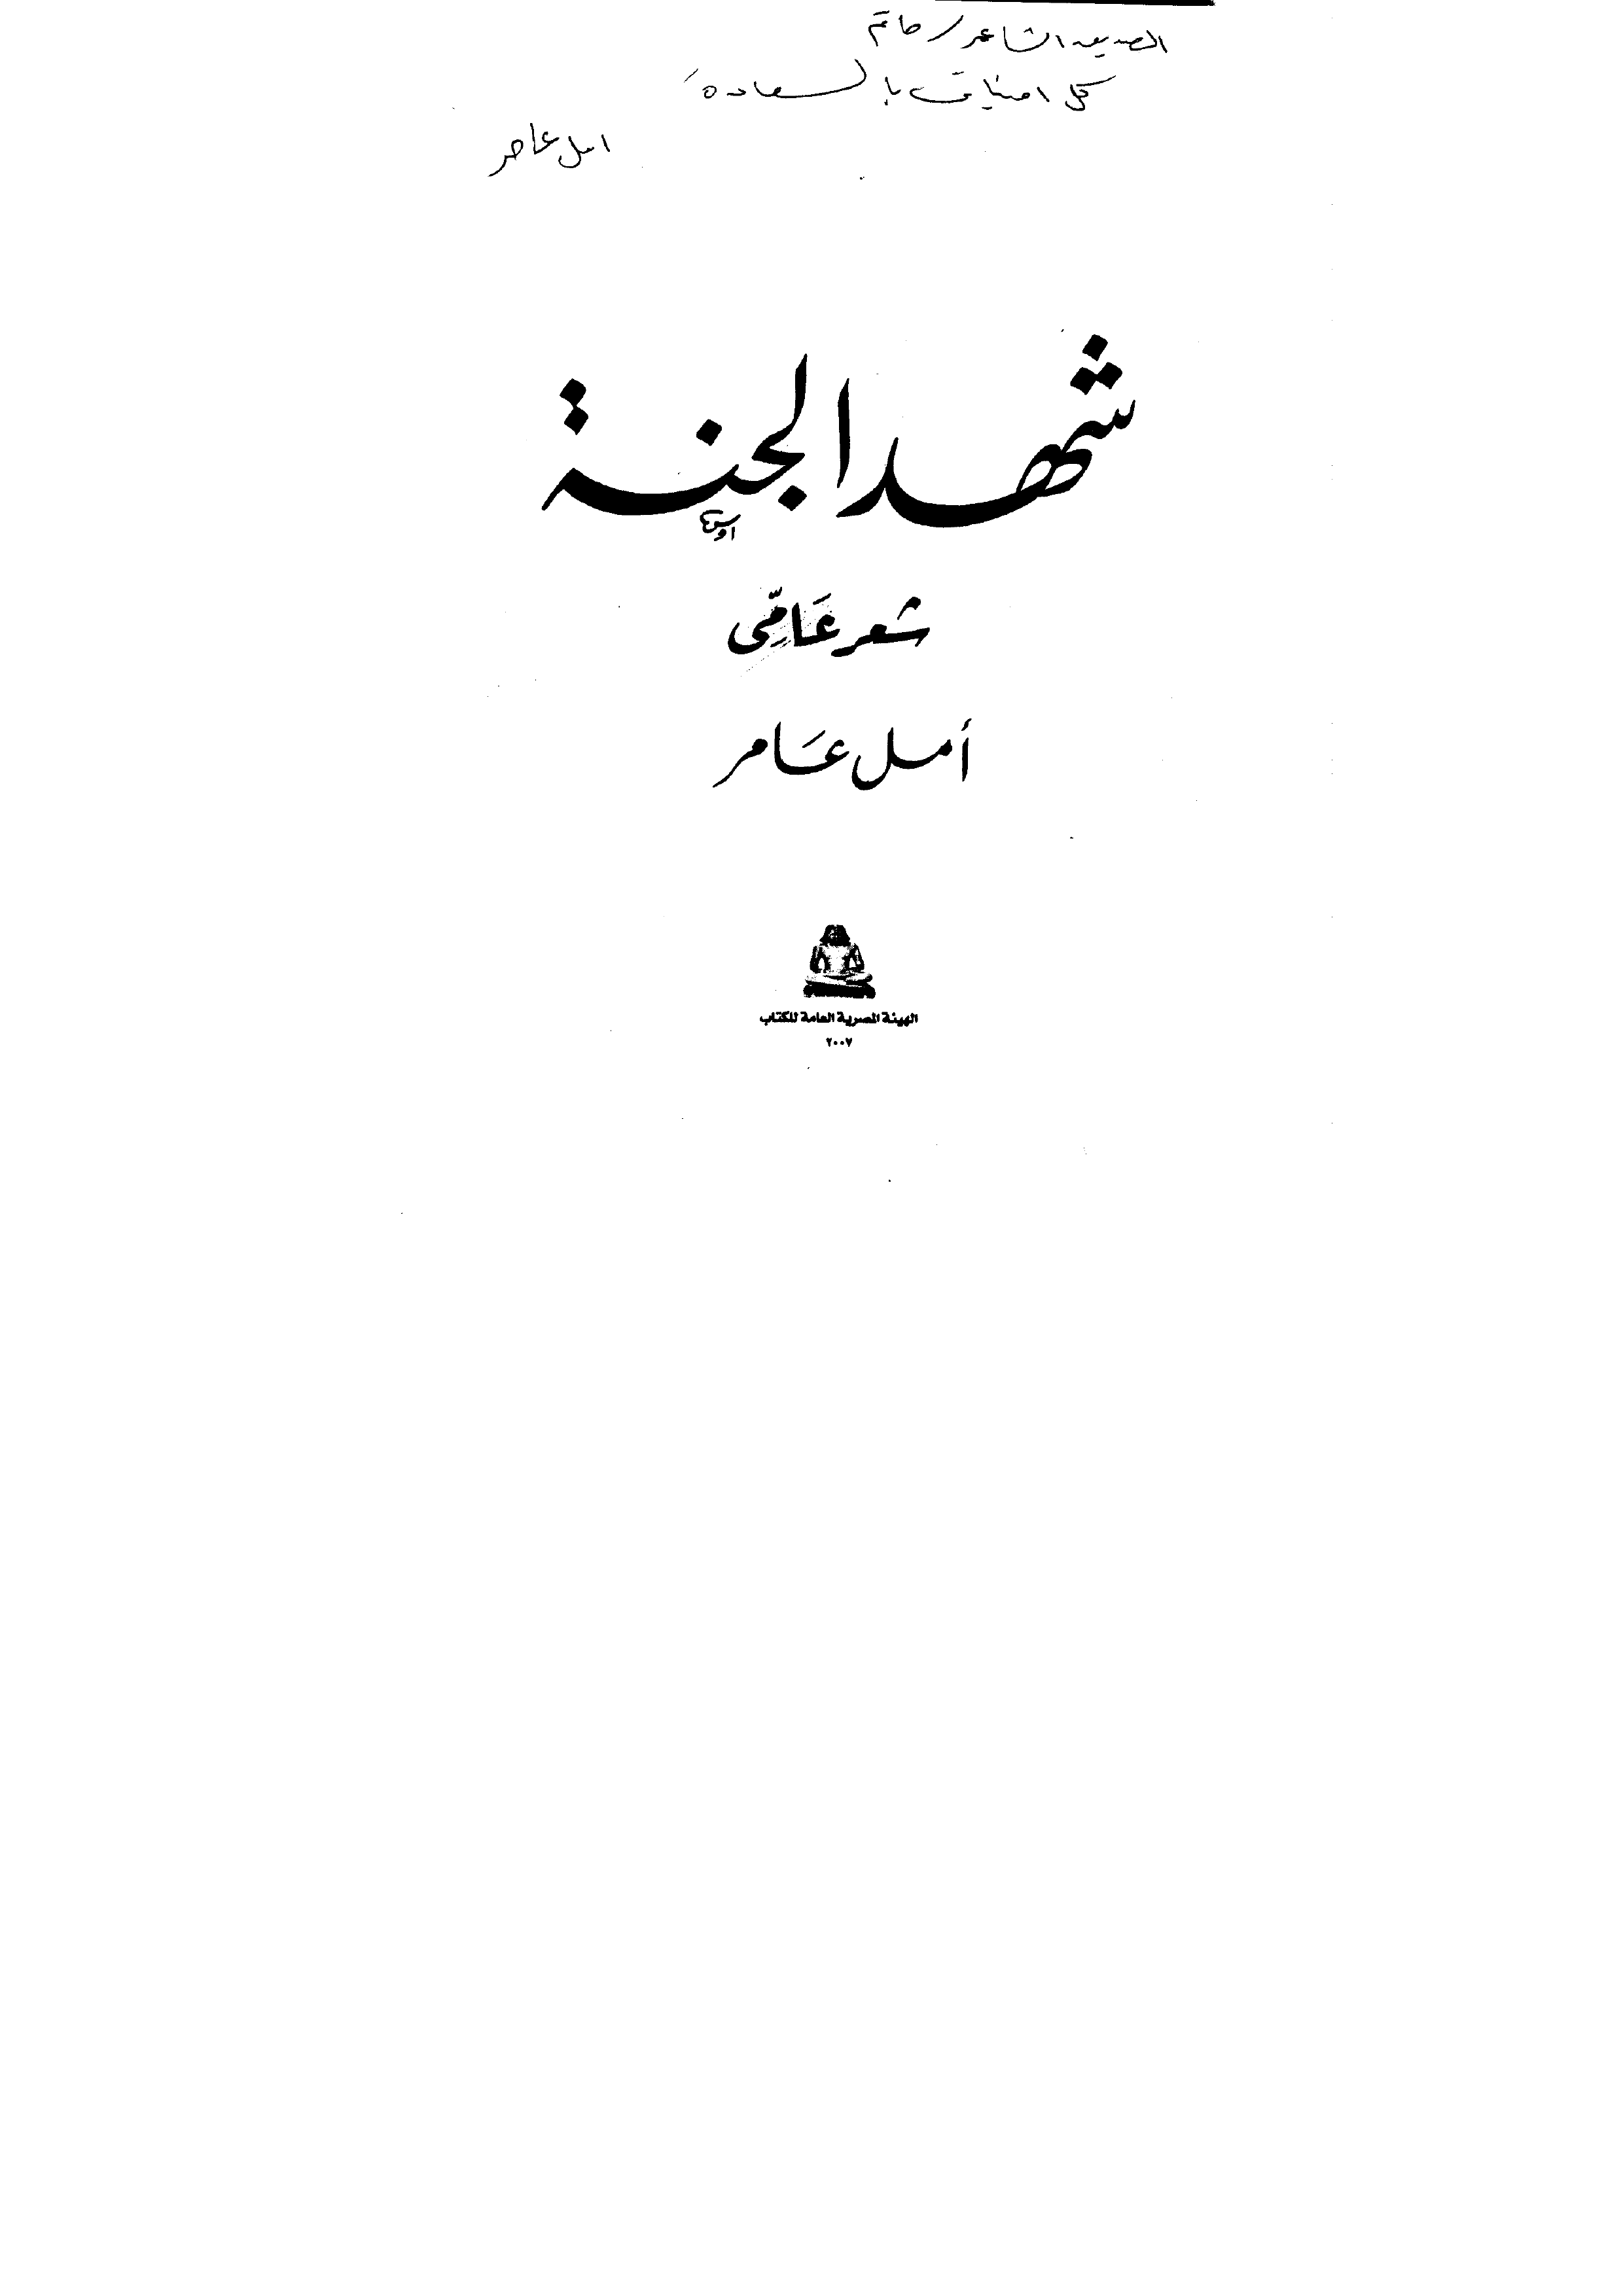 الصديق الشاعر / حاتم
كل امنياتى بالسعاده
امل عامر
شهد الجنة
شعر عَامِّى
أمل عَامر
الهيئة المصرية العامة للكتاب
٢٠٠٧